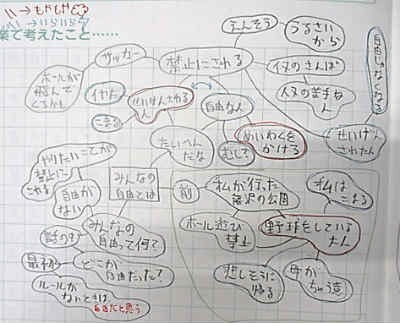 もやもやする
いらいら
業で考えたこと……
えんそう
うるさいから
サッカー
禁止にされる
イヌのさんぽ
犬の苦手な人
自由じゃなくなる
ボールが飛んでくるかも
イヤだ
せいげんされる人
自由な人
こまる
めいわくをかける
せいげんされた人
たいへんだな
やりたいことが禁止にされる
みんなの自由とは
自由がない
みんなの自由って何?
最初
どこが自由だった?
ルールがないときは
前
私が行った
の公園
私はこまる
ボール遊び禁止
野球をしている大人
悲しそうに帰る
年がちがう